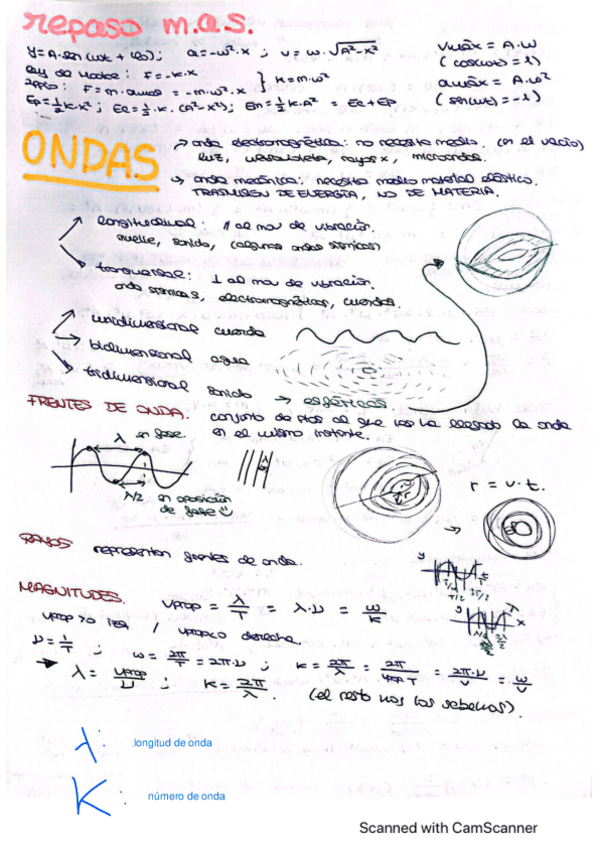 repaso m.a.s.
y = A·sen(ωt + φ₀); a = -ω²·x ; v = ω·√A²-x² vmáx = A·ω
(cos(ωt) = 1)
Ley de Hooke: F = -k·x } k = m·ω² amáx = A·ω²
F = m·amas = -m·ω²·x (sen(ωt) = -1)
Ep = ½k·x²; Ec = ½·k·(A²-x²); Em = ½·k·A² = Ec+Ep
ONDAS
→ onda electromagnética: no necesita medio. (en el vacío)
luz, ultravioleta, rayos x, microondas.
→ onda mecánica: necesita medio material elástico.
TRANSMISIÓN DE ENERGÍA, NO DE MATERIA.
longitudinal: // al mov de vibración
muelle, sonido, (algunas ondas sísmicas)
transversal: ⊥ al mov de vibración.
onda sísmicas, electromagnéticas, cuerdas.
unidimensional cuerda
bidimensional agua
tridimensional sonido → esféricas.
FRENTES DE ONDA. conjunto de ptos al que les ha llegado la onda
en el mismo instante.
λ en fase
λ
r = v·t.
λ/2 en oposición
de fase
RAYOS representan frentes de onda.
y
MAGNITUDES. vprop = λ/T = λ·ν = ω/k
y
x
vprop derecha
ν = 1/T ; ω = 2π/T = 2π·ν ; k = 2π/λ = 2π/vprop·T = 2π·ν/v = ω/v
→ λ = vprop/ν ; k = 2π/λ. (el resto nos los sabemos).
λ: longitud de onda
K: número de onda
Scanned with CamScanner